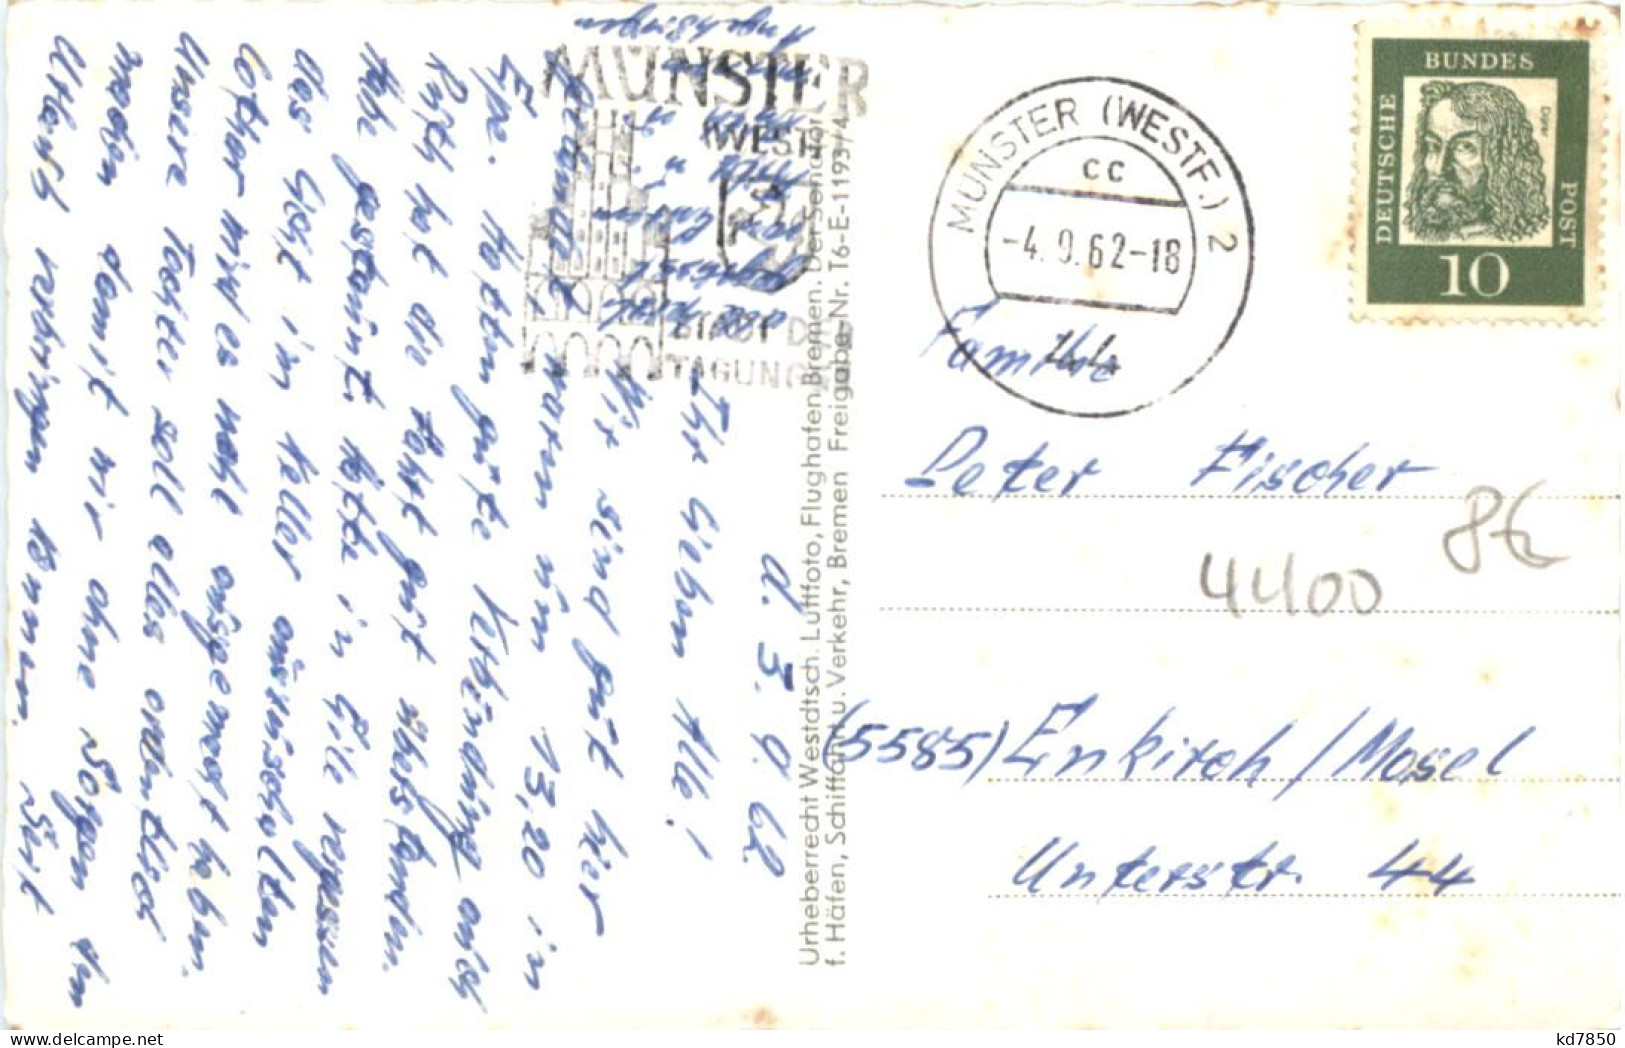 d. 3.9.62
Ihr lieben Alle!
Wir sind gut hier
waren um 13,20 in
Epe. Hatten gute Verbindung auch
Ruth hat die Fahrt gut überstanden.
Habe gestaunt hatte in Eile vergessen
das Licht im Keller auszuschalten
Lothar wird es wohl ausgemacht haben.
Unsere Tochter soll alles ordentlich
machen damit wir ohne Sorgen den
Urlaub verbringen können. Seit
Angehörigen
MÜNSTER
(WESTF.)
STADT DER
TAGUNGEN
Urheberrecht Westdtsch. Luftfoto, Flughafen Bremen. Der Senator
f. Häfen, Schiffahrt u. Verkehr, Bremen Freigabe-Nr. T6-E-1193/4
MÜNSTER (WESTF.) 2
cc
-4.9.62-18
DEUTSCHE
BUNDES
POST
10
Familie
Peter Fischer
4400
8€
(5585) Enkirch/Mosel
Unterstr. 44
kd7850